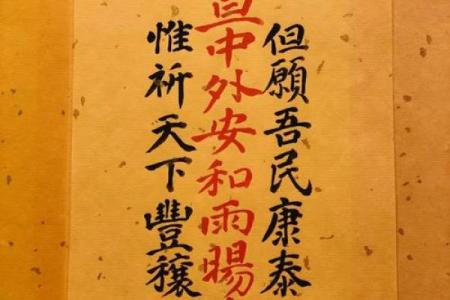 但願吾民康泰
中外安和雨暘
惟祈天下豐穰